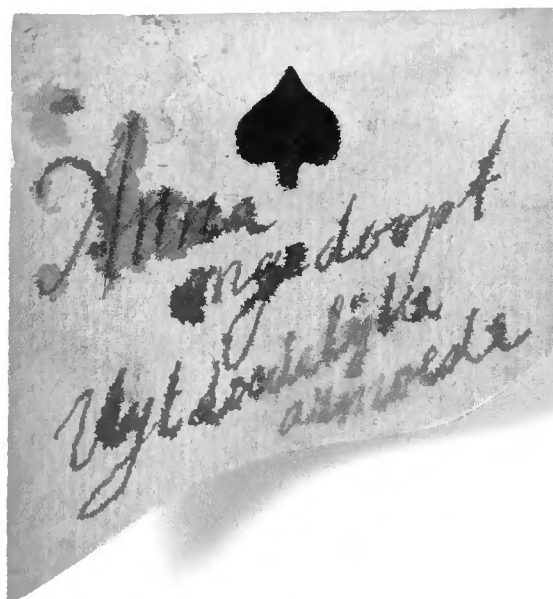 Anna
ongedoopt
Uyt doodelijke
armoede